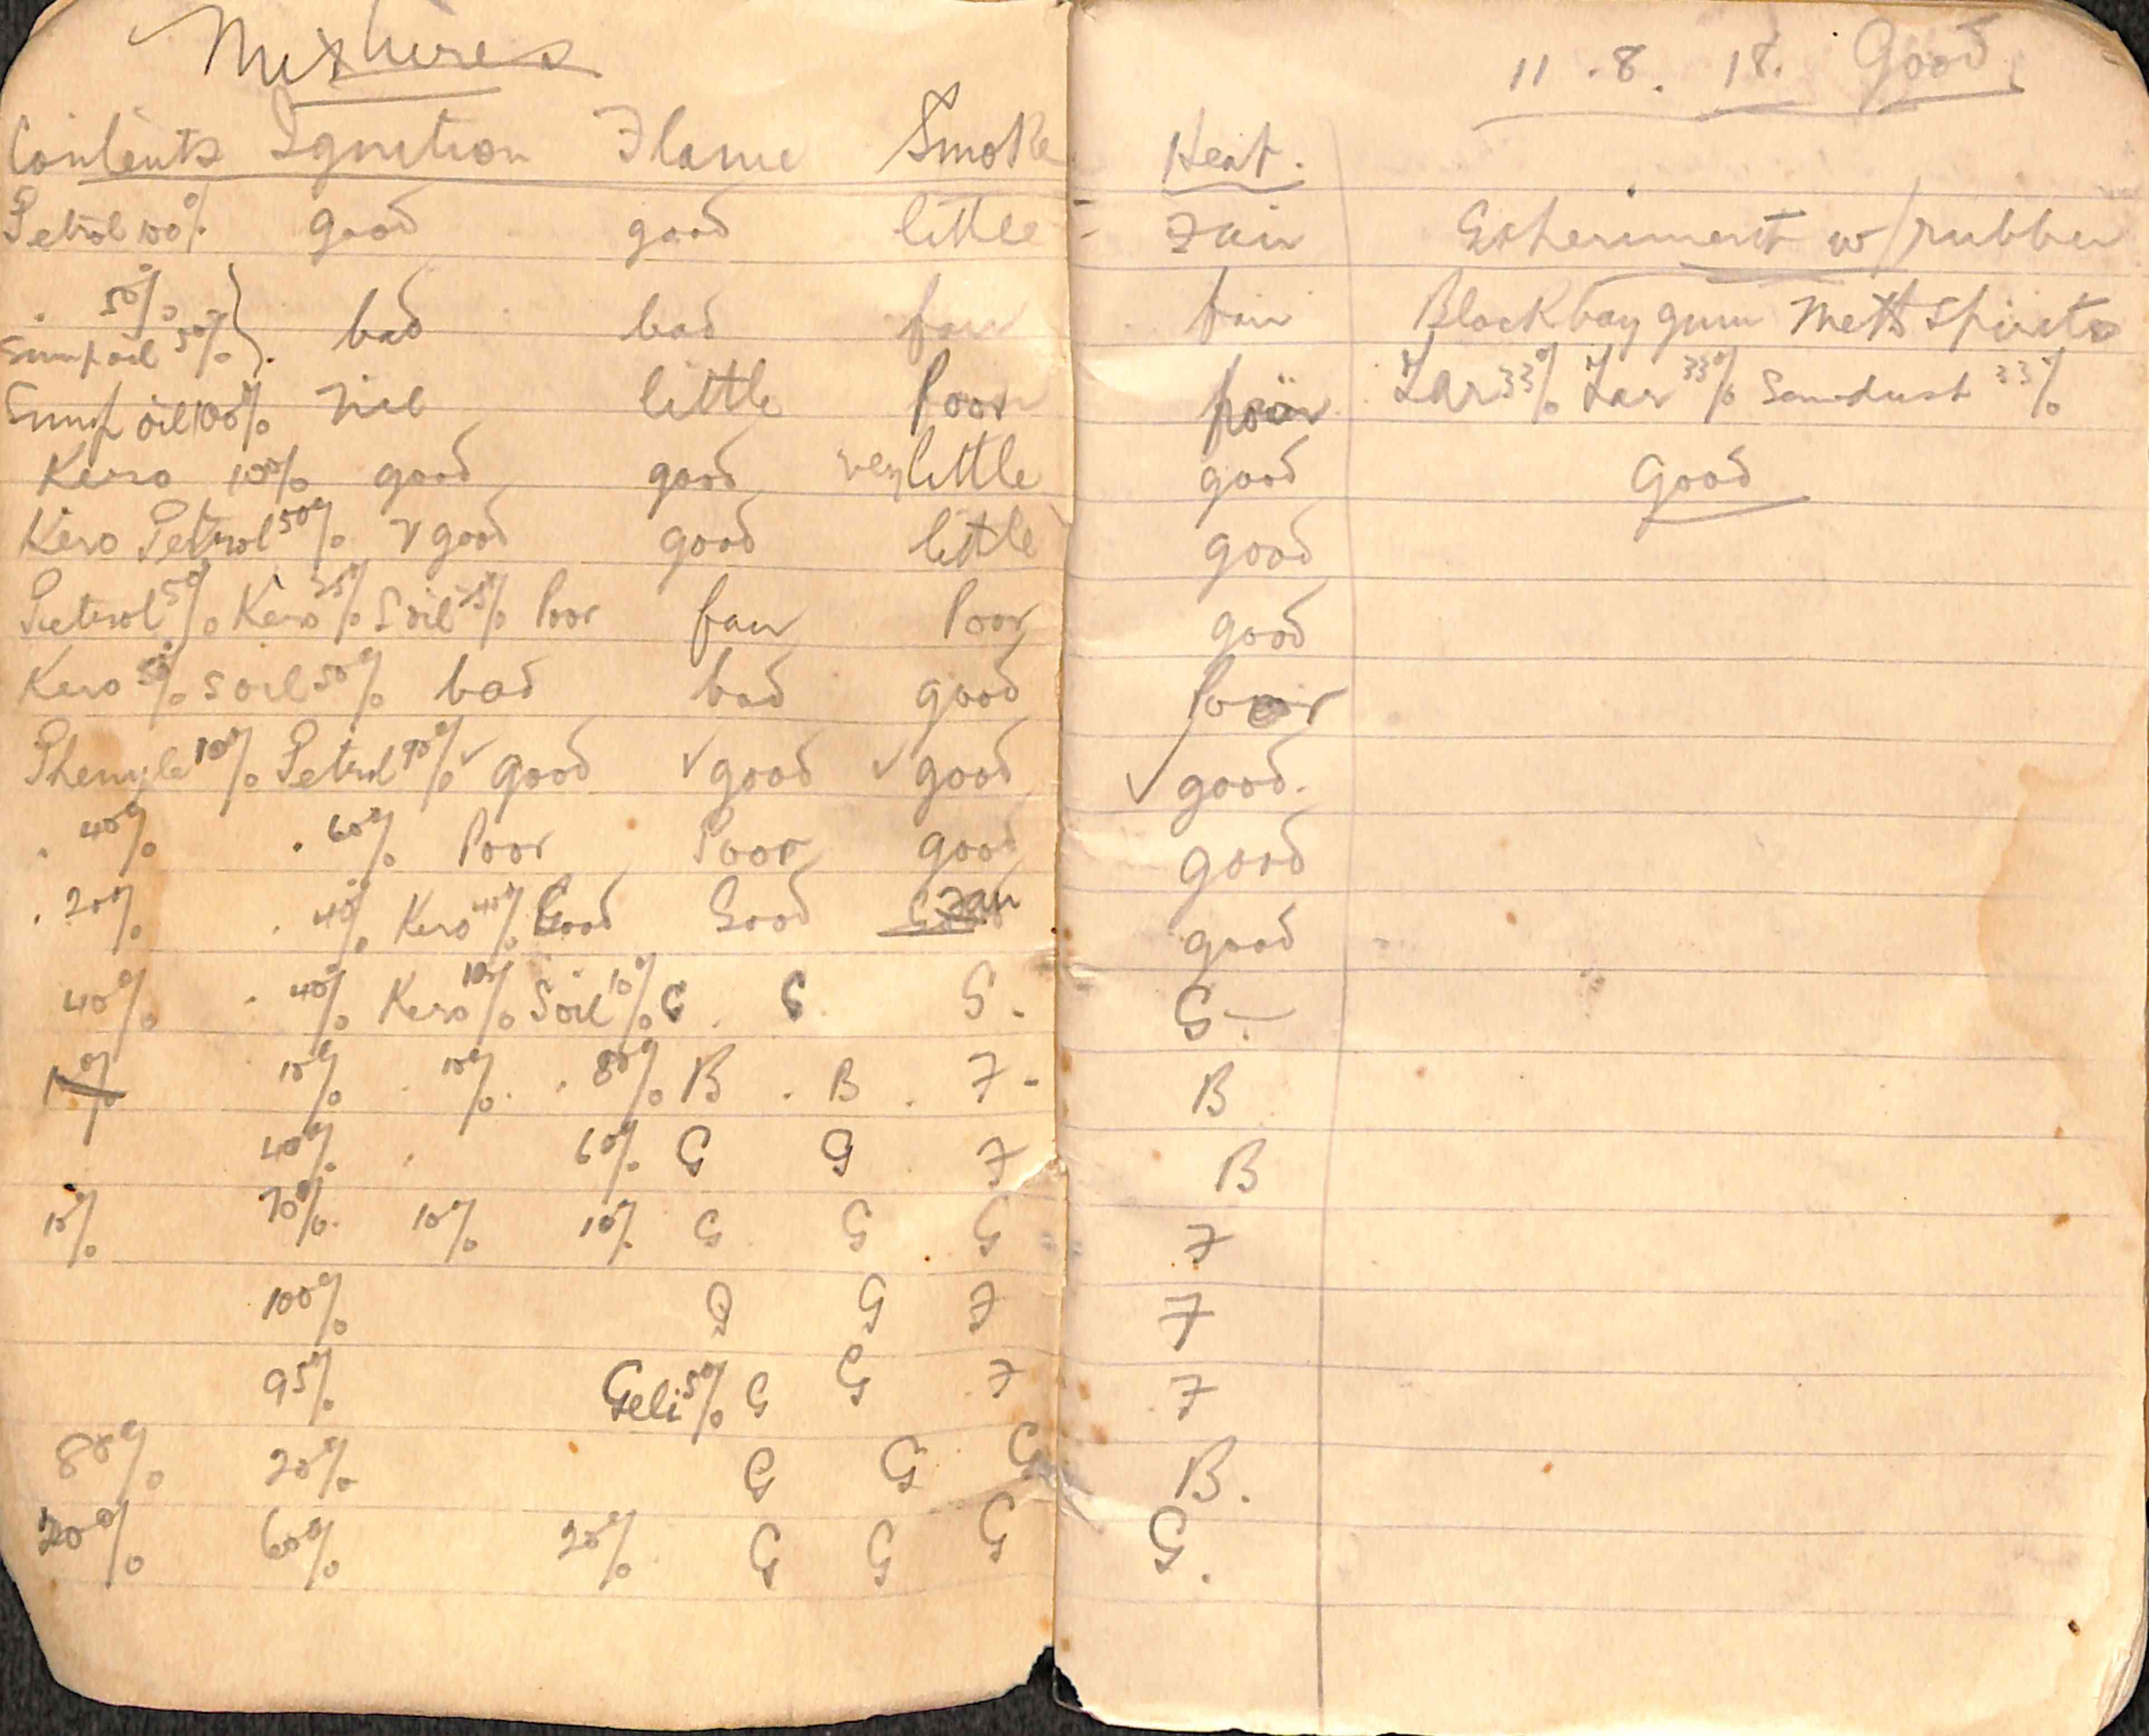 Mixtures
11 . 8 . 18. Good
Contents Ignition Flame Smoke Heat.
Petrol 100% good good little - Fair Experiment w/rubber
. 50% }
Sump oil 50% } . bad bad fair fair Blackbay gum Meth Spirits
Sump oil 100% Nil little Poor poor 33% 33% Sawdust 33%
Kero 100% good good very little good Good
Kero Petrol 50% v good good little good
Petrol 50% Kero 25% S oil 25% Poor fair Poor good
Kero 50% S oil 50% bad bad good Poor
Phenyle 10% Petrol 90% ✓ good ✓ good ✓ good ✓ good.
. 40% . 60% Poor Poor good good
. 20% . 40% Kero 40% Good Good Fair good
40% . 40% Kero 10% S oil 10% G . G G . G -
10% 10% . 10% . . 80% B . B . F - B
40% . 60% G G . F B
10% 70% 10% 10% G G G F
100% G G F F
95% Geli 5% G G F F
80% 20% G G G B.
20% 60% 20% G G G G.